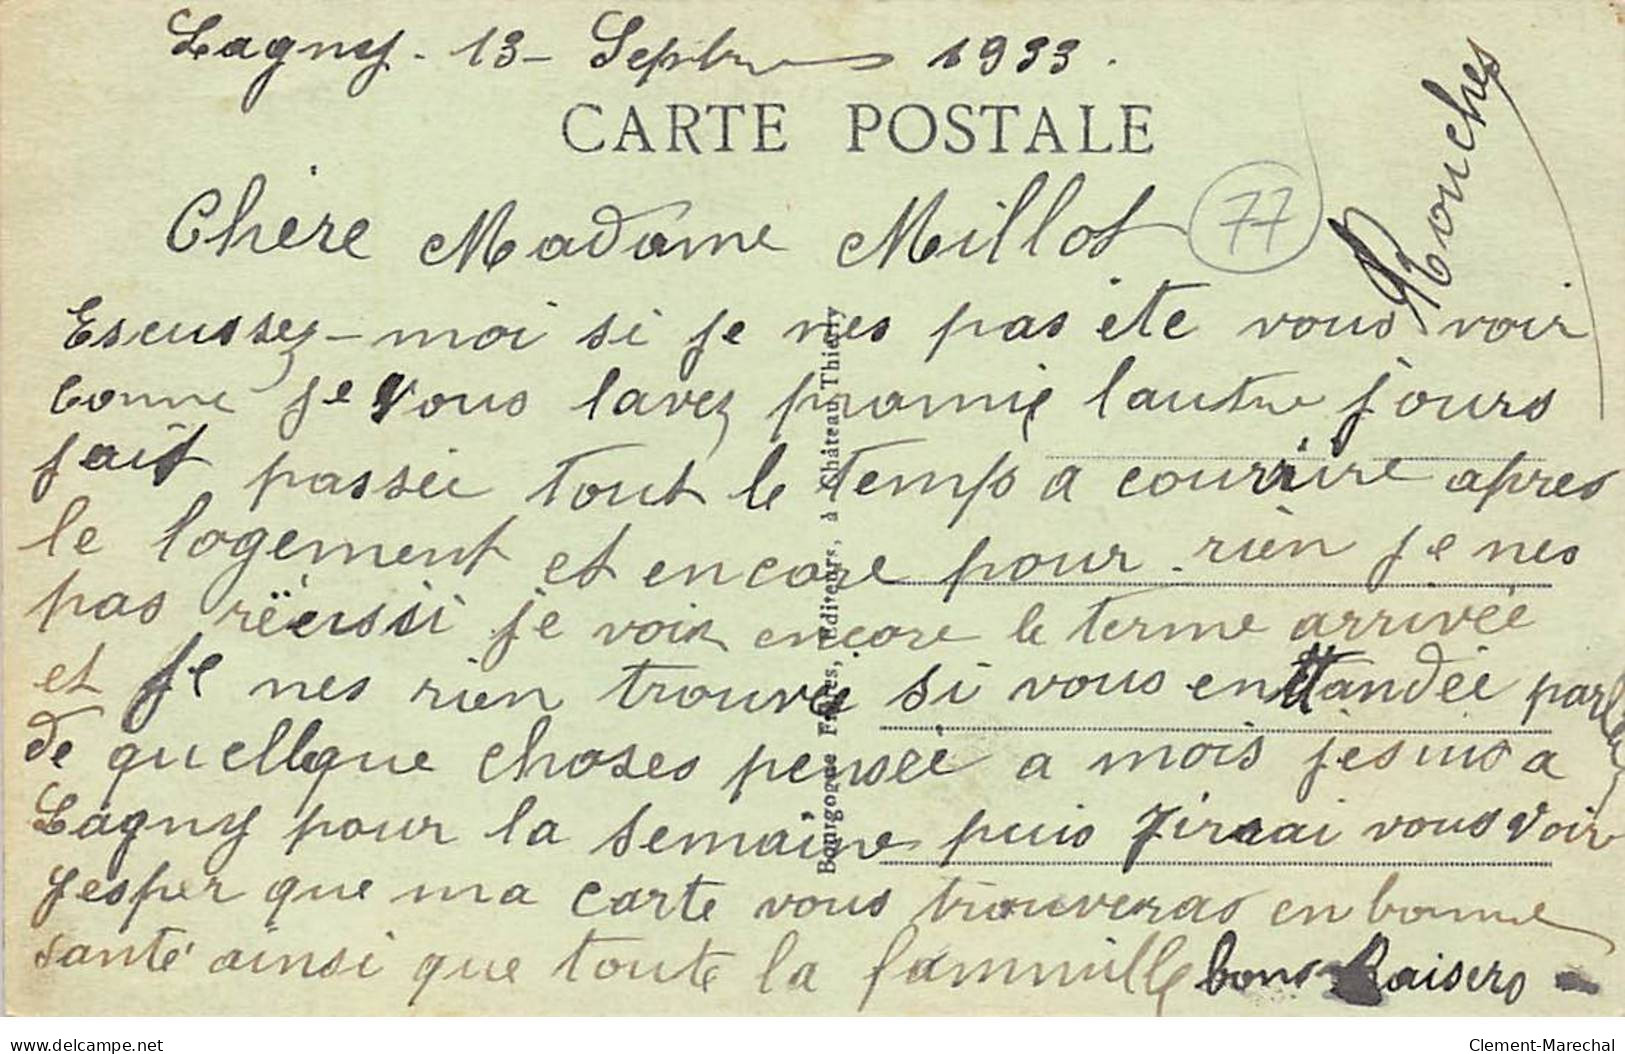 Lagny - 13 - Septbre 1933.
CARTE POSTALE
77
Rouches
Chère Madame Millot
Escussez-moi si je nes pas été vous voir
comme je vous lavez promie lautre jours
jait passée tout le temps a courrire apres
le logement et encore pour rien je nes
pas réeussi je voix encore le terme arrivée
et je nes rien trouvé si vous enttandée parlez
de quellque choses pensée a mois jesuis a
Lagny pour la semaine puis jiraai vous voir
jesper que ma carte vous trouveras en bonne
santé ainsi que toute la fammille bons Baisers
Bourgogne Frères, Editeurs, à Château-Thierry
www.delcampe.net
Clement-Marechal